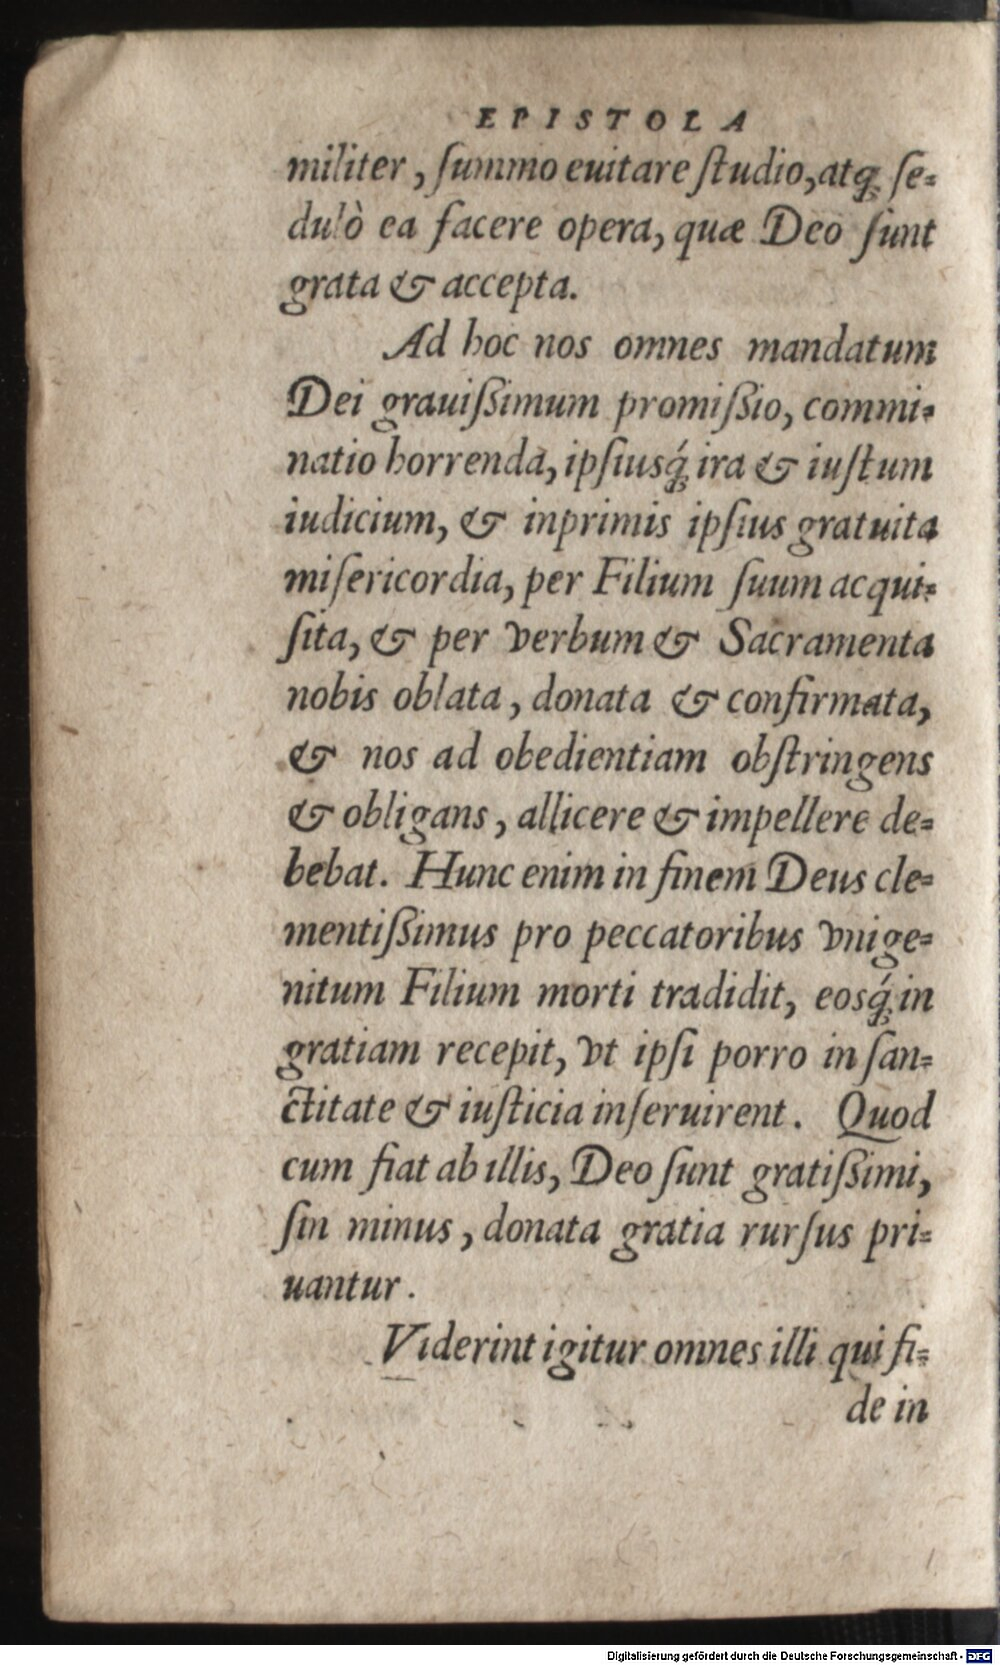 EPISTOLA
militer, ſummo euitare ſtudio, atq; ſe-
dulò ea facere opera, quæ Deo ſunt
grata & accepta.
Ad hoc nos omnes mandatum
Dei grauiſsimum promiſsio, commi-
natio horrenda, ipſiusq́; ira & iuſtum
iudicium, & inprimis ipſius gratuita
miſericordia, per Filium ſuum acqui-
ſita, & per verbum & Sacramenta
nobis oblata, donata & confirmata,
& nos ad obedientiam obſtringens
& obligans, allicere & impellere de-
bebat. Hunc enim in finem Deus cle-
mentiſsimus pro peccatoribus vnige-
nitum Filium morti tradidit, eosq́; in
gratiam recepit, vt ipſi porro in ſan-
ctitate & iuſticia inſeruirent. Quod
cum fiat ab illis, Deo ſunt gratiſsimi,
ſin minus, donata gratia rurſus pri-
uantur.
Viderint igitur omnes illi qui fi-
de in
Digitalisierung gefördert durch die Deutsche Forschungsgemeinschaft - DFG